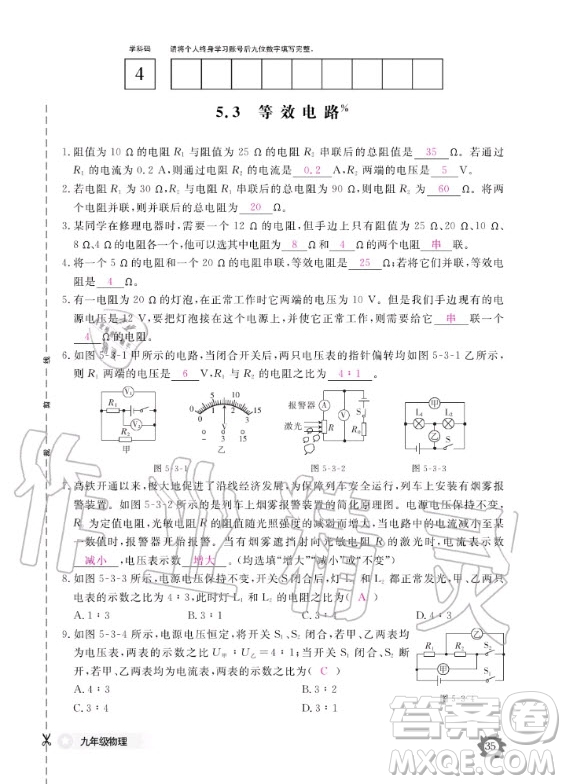 学科码 请将个人终身学习账号后九位数字填写完整。
4
5.3 等效电路%
1.阻值为 10 Ω 的电阻 R₁ 与阻值为 25 Ω 的电阻 R₂ 串联后的总阻值是 35 Ω。若通过
R₁ 的电流为 0.2 A,则通过电阻 R₂ 的电流是 0.2 A,R₁ 两端的电压是 5 V。
2.若电阻 R₁ 为 30 Ω,与电阻 R₂ 串联后的总电阻为 90 Ω,则 R₂ 为 60 Ω。将两
个电阻并联,并联后的总电阻为 20 Ω。
3.某同学在修理电器时,需要一个 12 Ω 的电阻,但手边只有两个 10 Ω 的电阻和 2 Ω、
8 Ω、4 Ω 的电阻各一个,他可以选其中电阻为 8 Ω 和 4 Ω 的两个电阻 串 联。
4.将一个 5 Ω 的电阻和一个 20 Ω 的电阻进行串联和并联,它们的
总电阻是 4 Ω。
5.有一电阻为 20 Ω 的灯泡,在正常工作时它两端的电压为 10 V。但是我们手边只有电压
为 12 V,要把灯泡接在这个电源上,并正常工作,则应给它 串 联一
6.如图 5-3-1 甲所示的电路,当闭合开关后,两个电压表的指针偏转均如图 5-3-1 乙所示,
则 R₁ 两端的电压是 6 V,R₁ 和 R₂ 的电阻之比为 4∶1 。
V₁
R₁ R₂
V₂
甲
0 5 10 15
0 1 2 3
15
乙
报警器
激光
A
R
R₀
V
S
甲
L₁ L₂
乙
S
图 5-3-1 图 5-3-2 图 5-3-3
7.高铁开通以来,极大地促进了沿线经济发展,为保障列车安全运行,列车上安装有烟雾
报警装置。图 5-3-2 所示的是列车上的烟雾报警装置的简化原理图。电源电压保持不变,
R₀ 为定值电阻,光敏电阻 R 的阻值随光照强度的减弱而增大,当电路中的电流减小至一
定值时,报警器开始报警。当有烟雾遮挡射向光敏电阻 R 的激光时,电流表示数
减小 ,电压表示数 增大 。(均选填“增大”“减小”或“不变”)
8.如图 5-3-3 所示,电源电压保持不变,闭合开关后,灯 L₁ 和 L₂ 都正常发光,甲、乙两个
电表的示数之比为 4∶3,此时灯 L₁ 和 L₂ 的电阻之比为( A )
A.1∶3 B.3∶1 C.3∶4 D.4∶3
9.如图 5-3-4 所示,电源电压恒定,将开关 S₁ 闭合,若甲、乙两表为
电压表时,两表的示数之比为 U甲∶U乙=4∶1;当开关 S₁、S₂ 闭
合,若甲、乙两表均为电流表,则两表的示数之比为( C )
A.4∶3 B.3∶4
C.3∶1 D.1∶3
图 5-3-4
九年级物理
35
作业精灵
答案圈